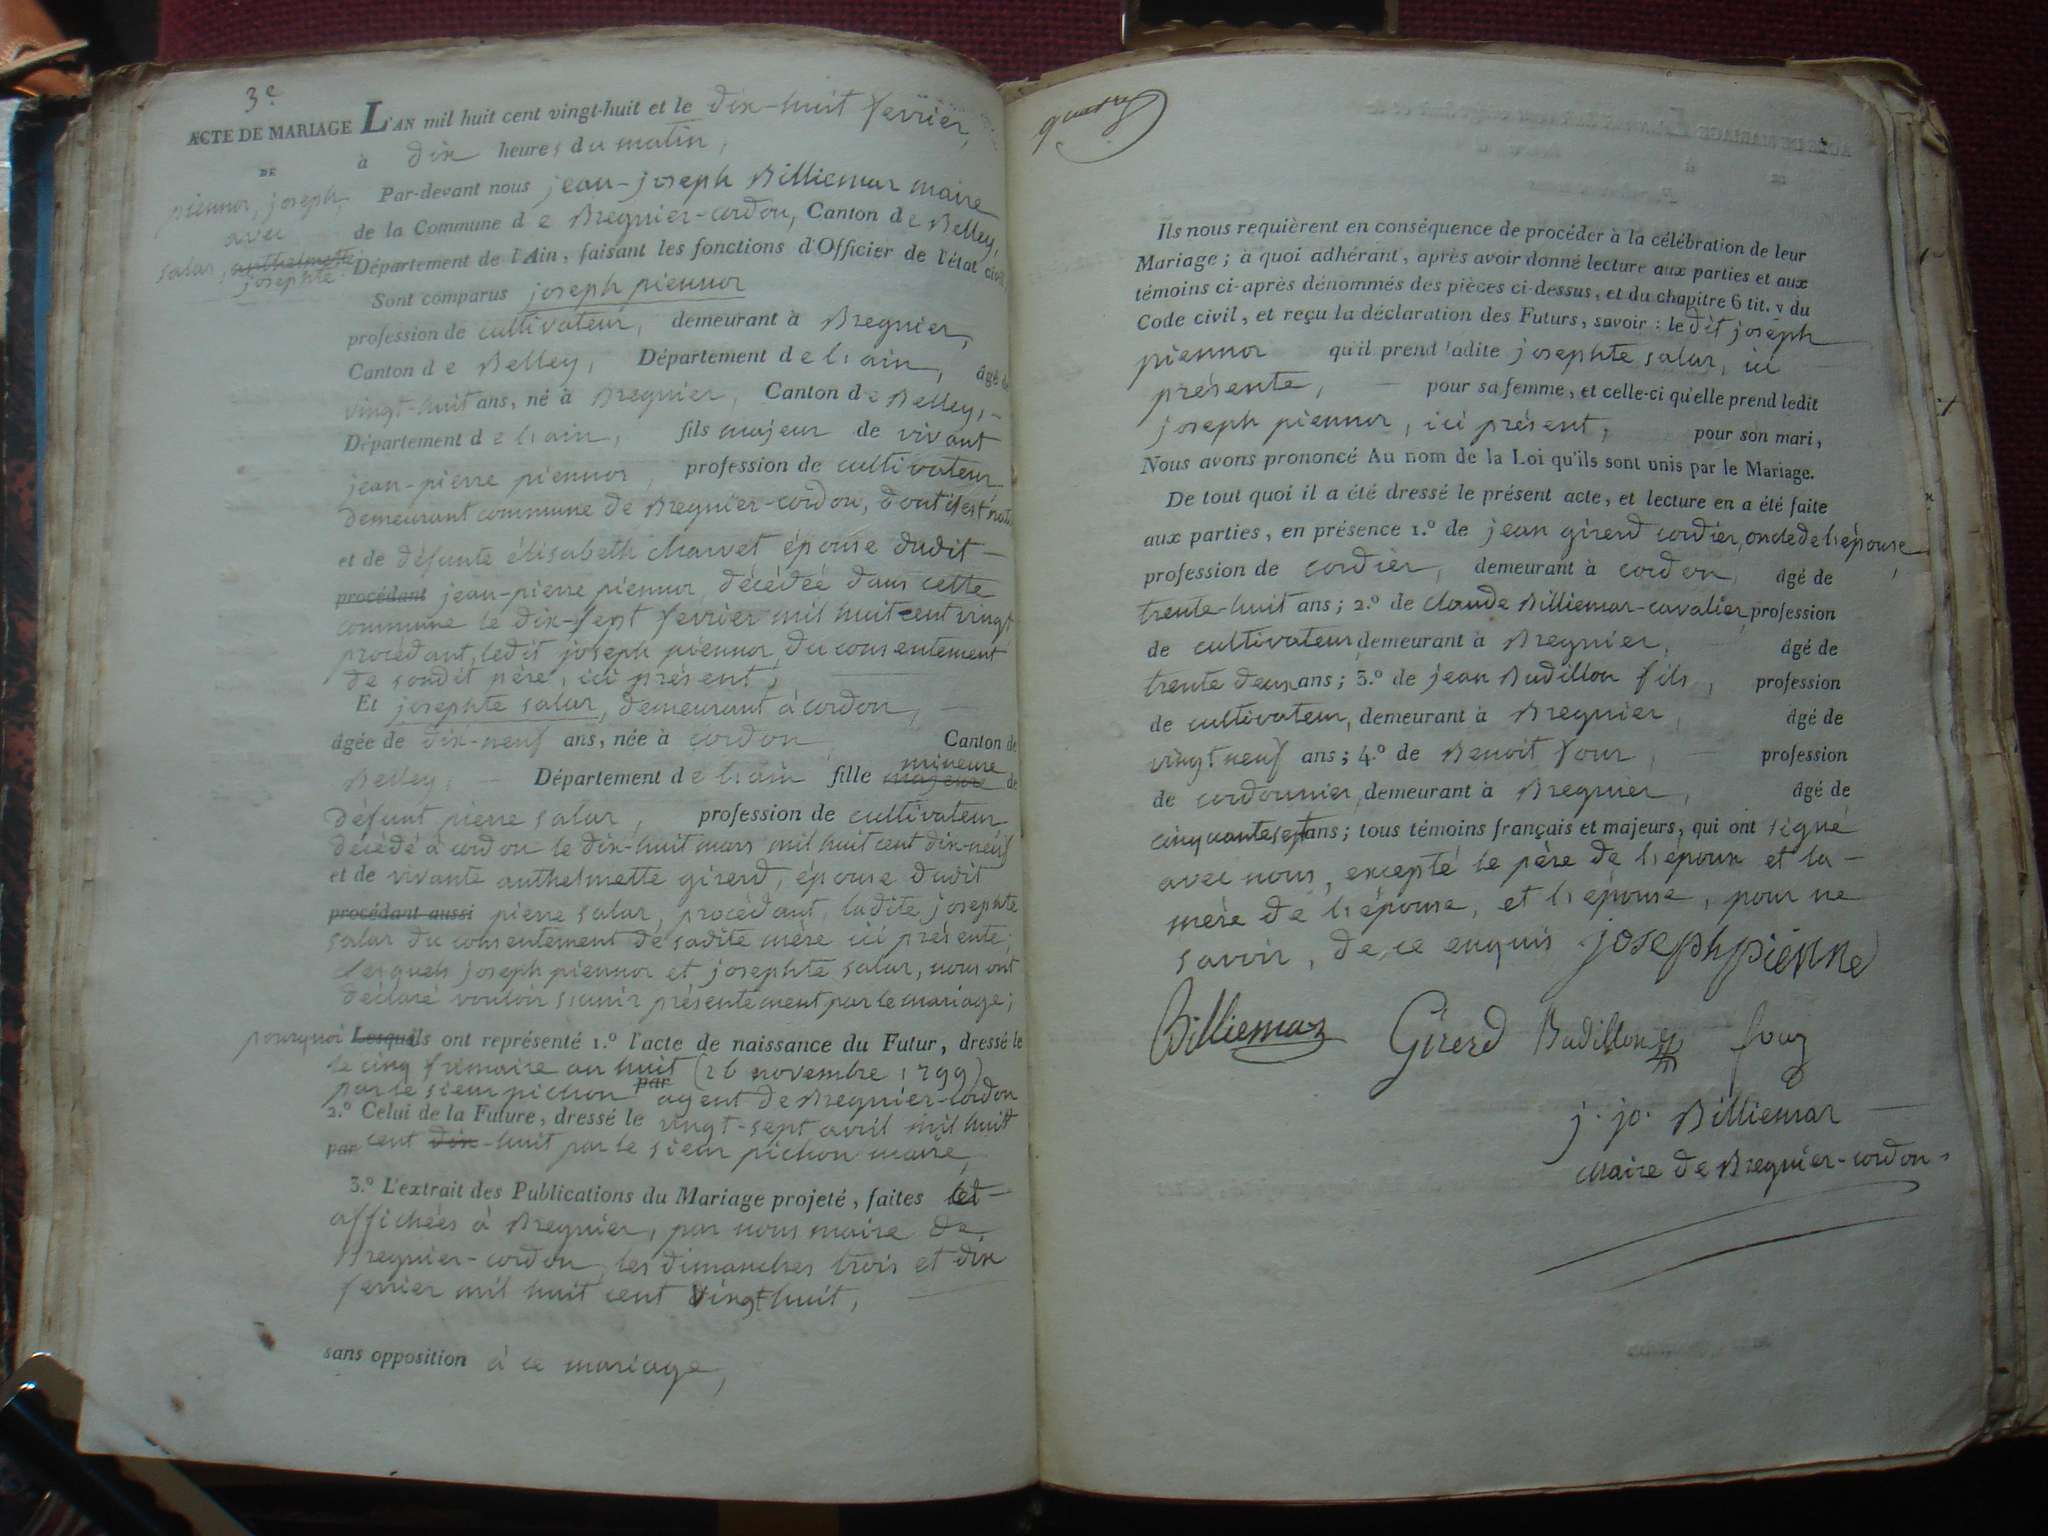 3e
ACTE DE MARIAGE
DE
piennoz, joseph,
avec
salaz, anthelmette
josephte
L'AN mil huit cent vingt-huit et le dix-huit fevrier,
à dix heures du matin,
Par-devant nous jean-joseph Billiemaz maire
de la Commune de Bregnier-cordon, Canton de Belley,
Département de l'Ain, faisant les fonctions d'Officier de l'état civil
Sont comparus joseph piennoz
profession de cultivateur, demeurant à Bregnier,
Canton de Belley, Département de l'ain, âgé de
vingt-huit ans, né à Bregnier, Canton de Belley,
Département de l'ain, fils majeur de vivant
jean-pierre piennoz, profession de cultivateur
demeurant commune de Bregnier-cordon, dont il est natif
et de défunte élisabeth charvet épouse dudit
procédant jean-pierre piennoz, décédée dans cette
commune le dix-sept fevrier mil huit cent vingt
procédant, ledit joseph piennoz du consentement
de sondit père, ici présent;
Et josephte salaz, demeurant à cordon,
âgée de dix-neuf ans, née à cordon, Canton de
Belley, Département de l'ain fille majeure mineure de
défunt pierre salaz, profession de cultivateur
décédé à cordon le dix-huit mars mil huit cent dix-neuf
et de vivante anthelmette girerd, épouse dudit
procédant aussi pierre salaz, procédant, ladite josephte
salaz du consentement de sadite mère ici présente;
lesquels joseph piennoz et josephte salaz, nous ont
déclaré vouloir s'unir présentement par le mariage;
pourquoi Lesquels ont représenté 1.º l'acte de naissance du Futur, dressé le
le cinq frimaire an huit (26 novembre 1799)
par le sieur pichon par agent de Bregnier-cordon
2.º Celui de la Future, dressé le vingt-sept avril mil huit
par cent dix-huit par le sieur pichon maire,
3.º L'extrait des Publications du Mariage projeté, faites et
affichées à Bregnier, par nous maire de
Bregnier-cordon, les dimanches trois et dix
fevrier mil huit cent vingt huit,
sans opposition à ce mariage,
quatre
Ils nous requièrent en conséquence de procéder à la célébration de leur
Mariage; à quoi adhérant, après avoir donné lecture aux parties et aux
témoins ci-après dénommés des pièces ci-dessus, et du chapitre 6 tit. v du
Code civil, et reçu la déclaration des Futurs, savoir : le dit joseph
piennoz qu'il prend ladite josephte salaz, ici
présente, pour sa femme, et celle-ci qu'elle prend ledit
joseph piennoz, ici présent, pour son mari,
Nous avons prononcé Au nom de la Loi qu'ils sont unis par le Mariage.
De tout quoi il a été dressé le présent acte, et lecture en a été faite
aux parties, en présence 1.º de jean girerd cordier, oncle de l'épouse,
profession de cordier, demeurant à cordon, âgé de
trente-huit ans; 2.º de claude Billiemaz-cavalier, profession
de cultivateur, demeurant à Bregnier, âgé de
trente deux ans; 3.º de jean Budillon fils, profession
de cultivateur, demeurant à Bregnier, âgé de
vingt neuf ans; 4.º de Benoit Four, profession
de cordonnier, demeurant à Bregnier, âgé de
cinquante sept ans; tous témoins français et majeurs, qui ont signé
avec nous, excepté le père de l'époux et la
mère de l'épouse, et l'épouse, pour ne
savoir, de ce enquis joseph pienne
Billiemaz Girerd Budillon fouz
j. jo. Billiemaz
Maire de Bregnier-cordon.